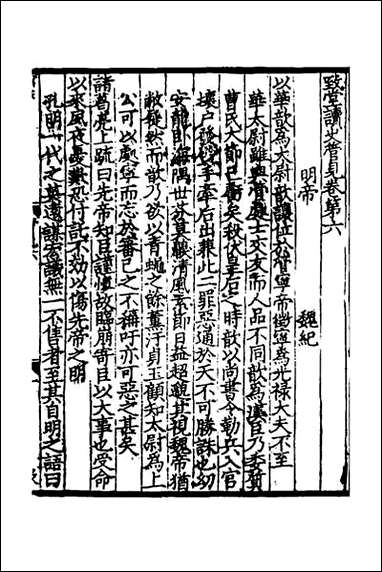 致堂讀史管見卷第六
明帝　魏紀
以華歆爲太尉歆讓位於管寧帝徵寧爲光祿大夫不至
華太尉雖與管處士交友而人品不同歆爲漢臣乃委質
曹氏大節已虧矣殺伏皇后之時歆以尚書令勒兵入宮
壞戶發壁手牽后出弑此二罪惡通於天不可勝誅也幼
安龍卧海隅世亦莫驥清風素節日益超邈其視魏帝猶
敝屣然而歆乃欲以青蠅之餘薰汙貞玉顧知太尉爲上
公可以處寧而忘於審己之不稱吁亦可惡之甚矣
諸葛亮上疏曰先帝知臣謹愼故臨崩寄臣以大事也受命
以來夙夜憂歎恐付託不効以傷先帝之明
孔明一代之英遠謀宏議無一不售者至其自明之語曰